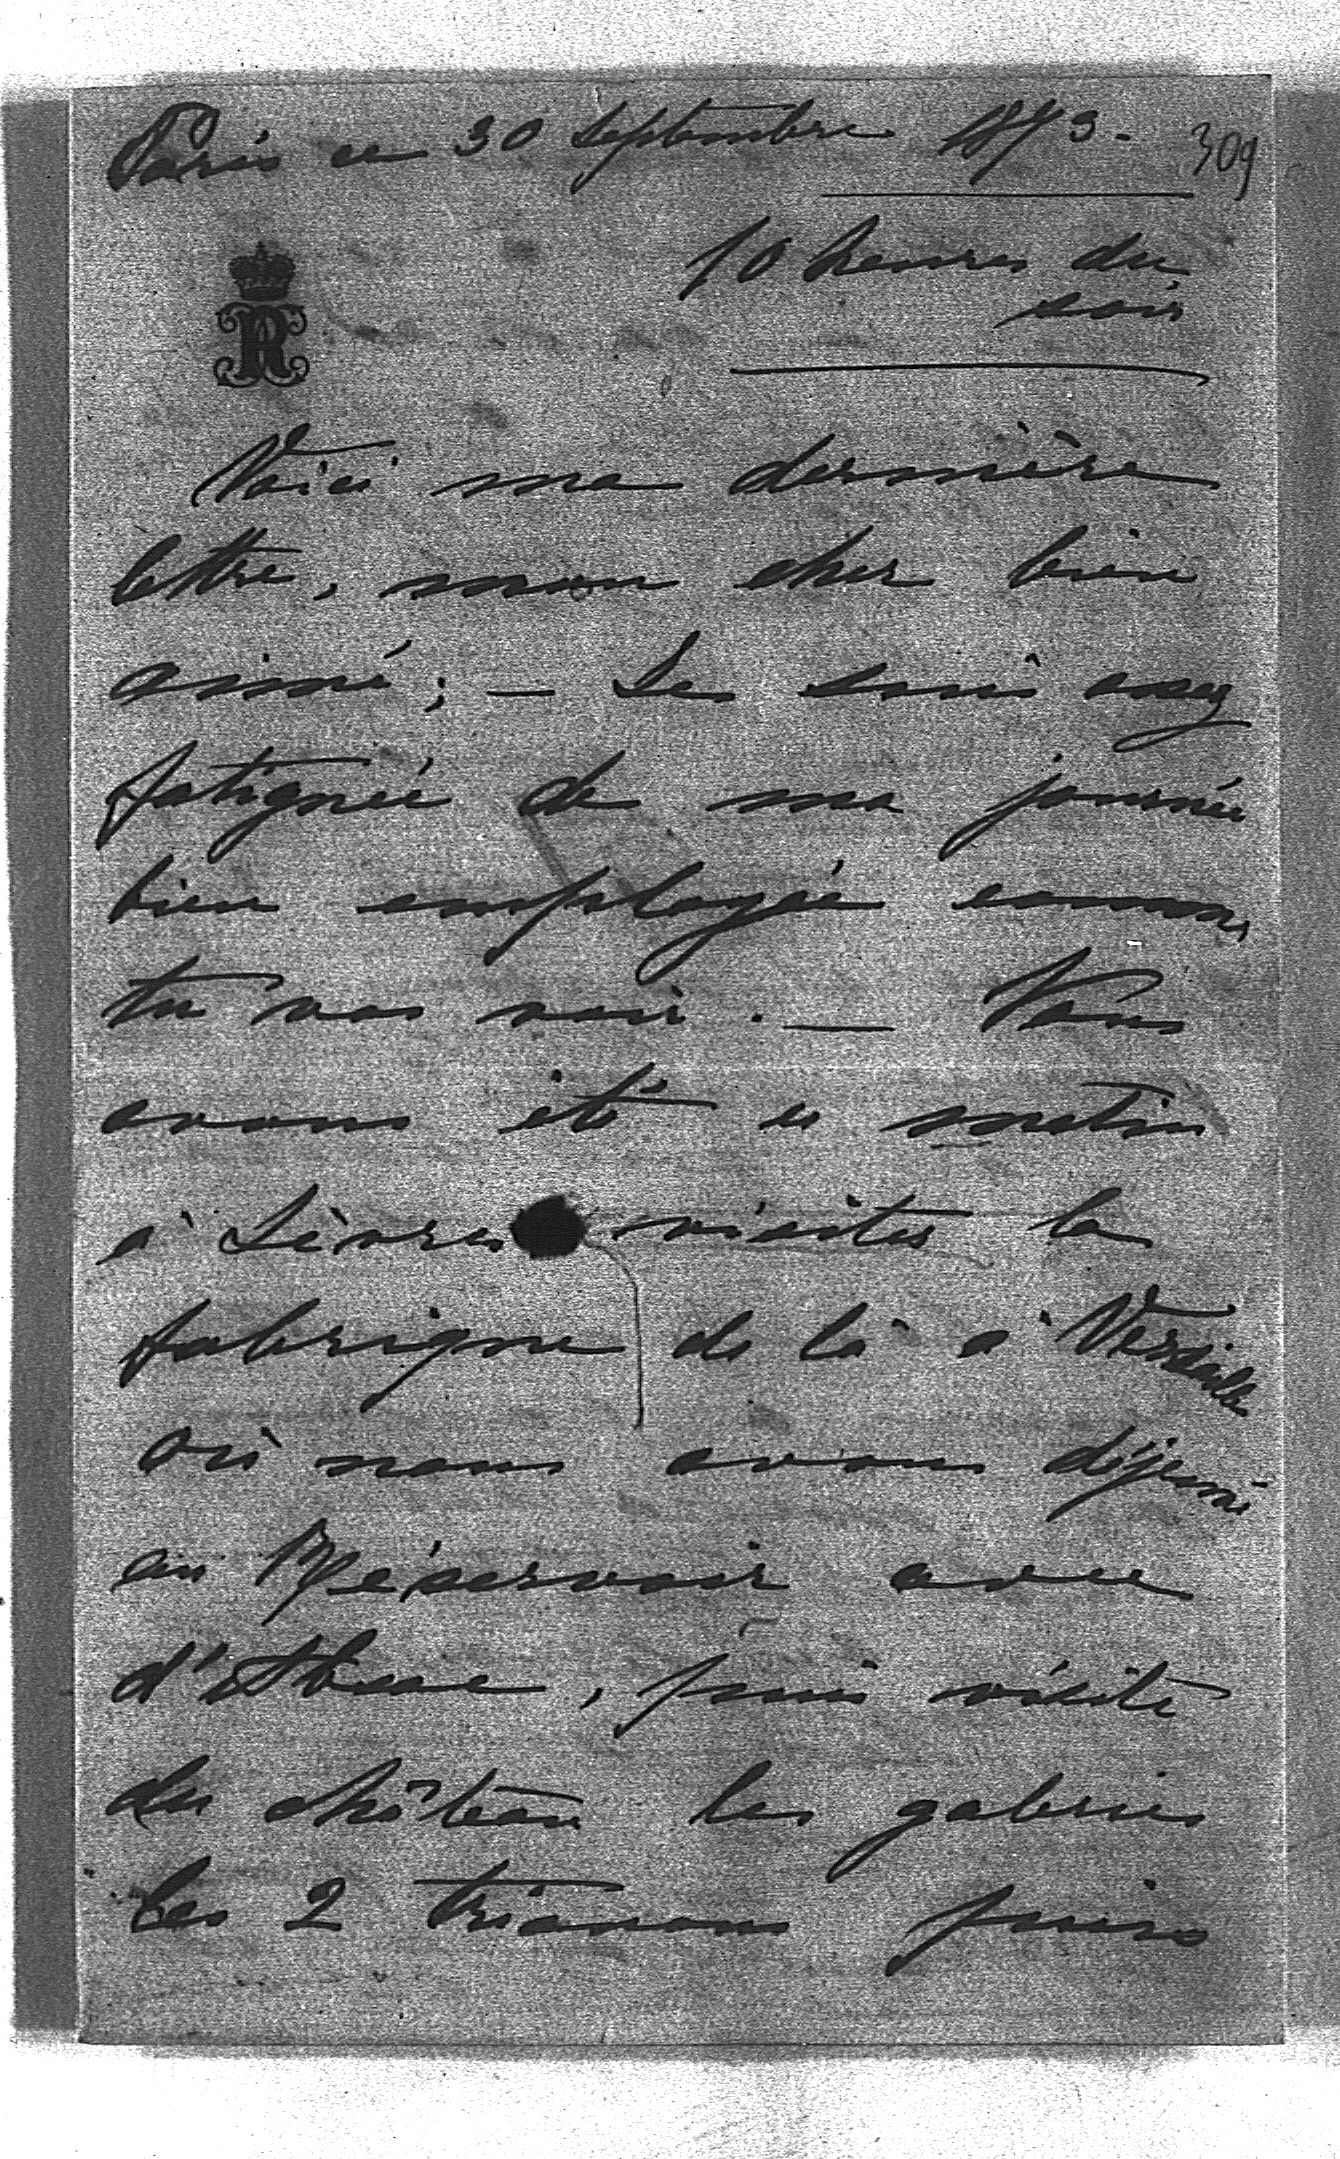 Paris ce 30 Septembre 1873.
309
10 heures du
soir
R
Voici ma dernière
lettre, mon cher bien
aimé; — Je suis assez
fatiguée de ma journée
bien employée comme
tu vas voir. — Nous
avons été ce matin
à Sèvres visiter la
fabrique de là à Versailles
où nous avons déjeuné
au Réservoir avec
puis visite
du château les galeries
les 2 trianons puis